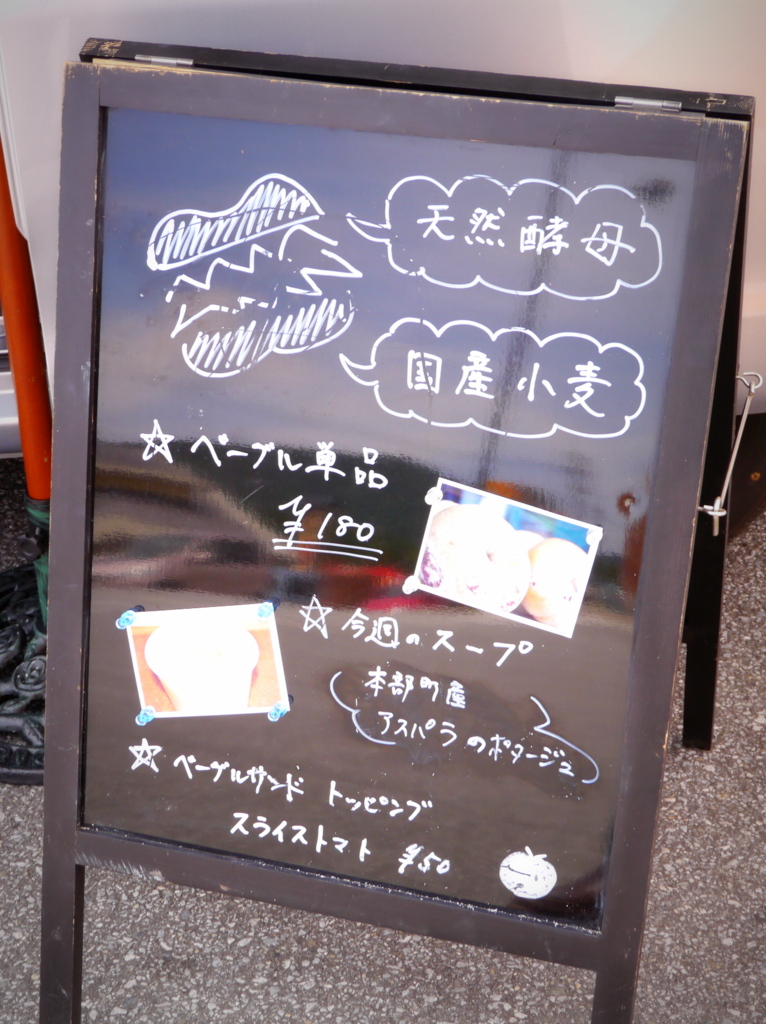 天然酵母
国産小麦
☆ ベーグル単品
¥180
☆ 今週のスープ
本部町産
アスパラのポタージュ
☆ ベーグルサンド トッピング
スライストマト ¥50